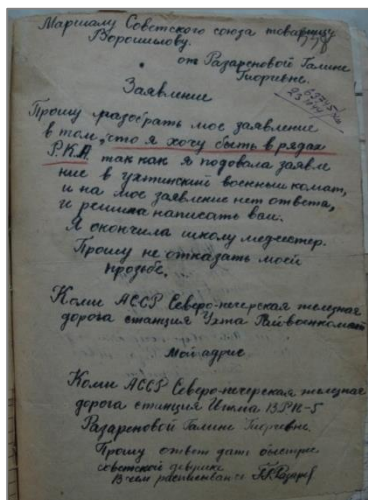 Маршалу Советского союза товарищу
Ворошилову.
от Разареновой Галине
Гиоривне.
Заявление
Прошу разобрать мое заявление
в том, что я хочу быть в рядах
Р.К.А. так как я подовала заявле
ние в ухтинский военный комат,
и на мое заявление нет ответа,
и решила написать вам.
Я окончила школу медсестер.
Прошу не отказать моей
прозьбе.
Коми АССР Северо-печерская железная
дорога станция Ухта Райвоенкомат
Мой адрис
Коми АССР Северо-печерская железная
дорога станция Ижма
Разареновой Галине Гиоривне
Прошу ответ дать быстрее
советской девушке
В чем расписываюсь